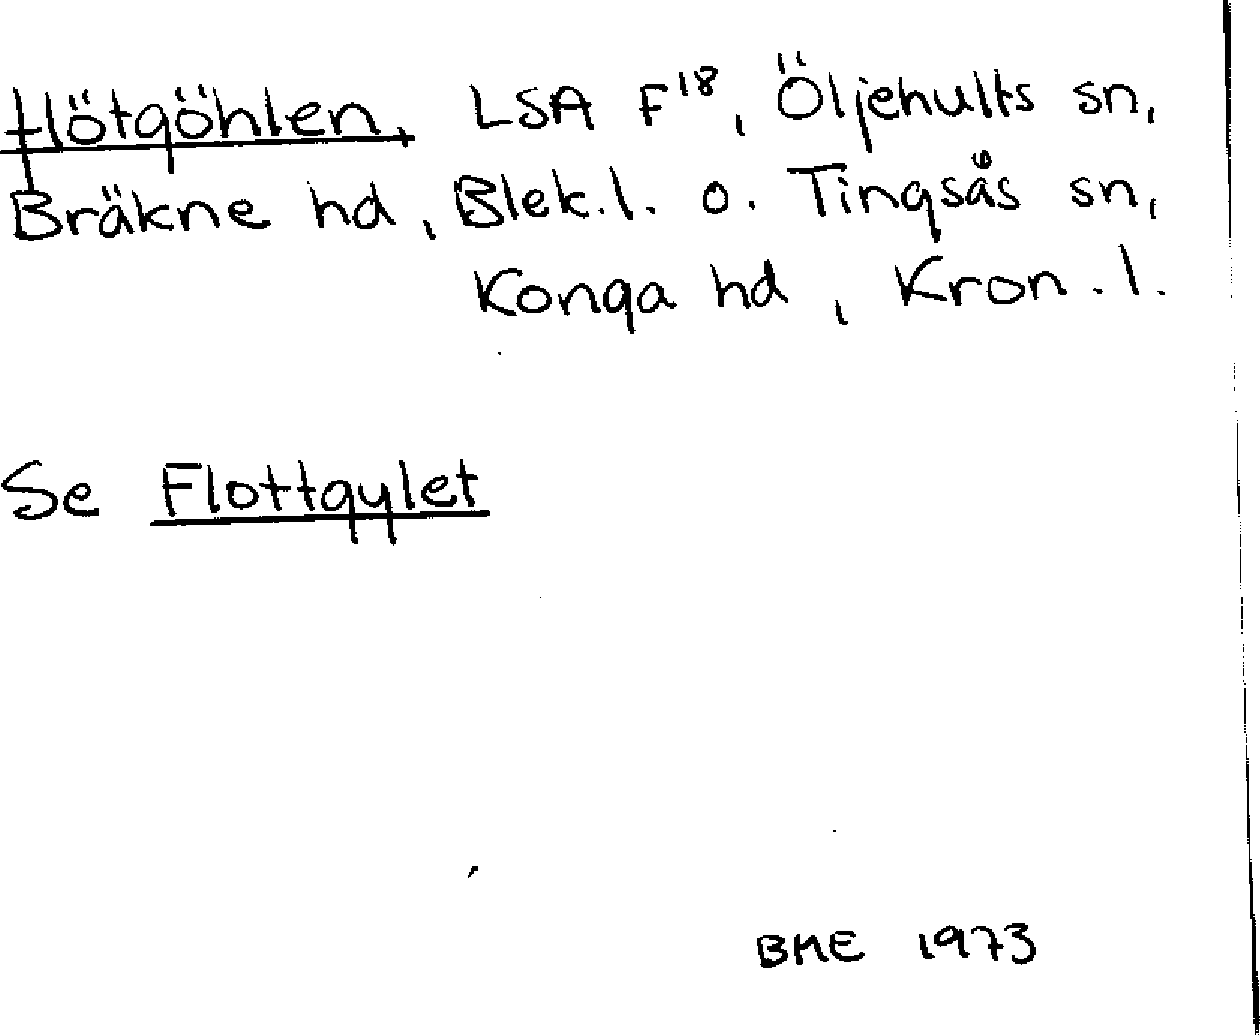 Flötgöhlen, LSA F18, Öljehults sn,
Bräkne hd, Blek.l. o. Tingsås sn,
Konga hd, Kron.l.
Se Flottgylet
BME 1973